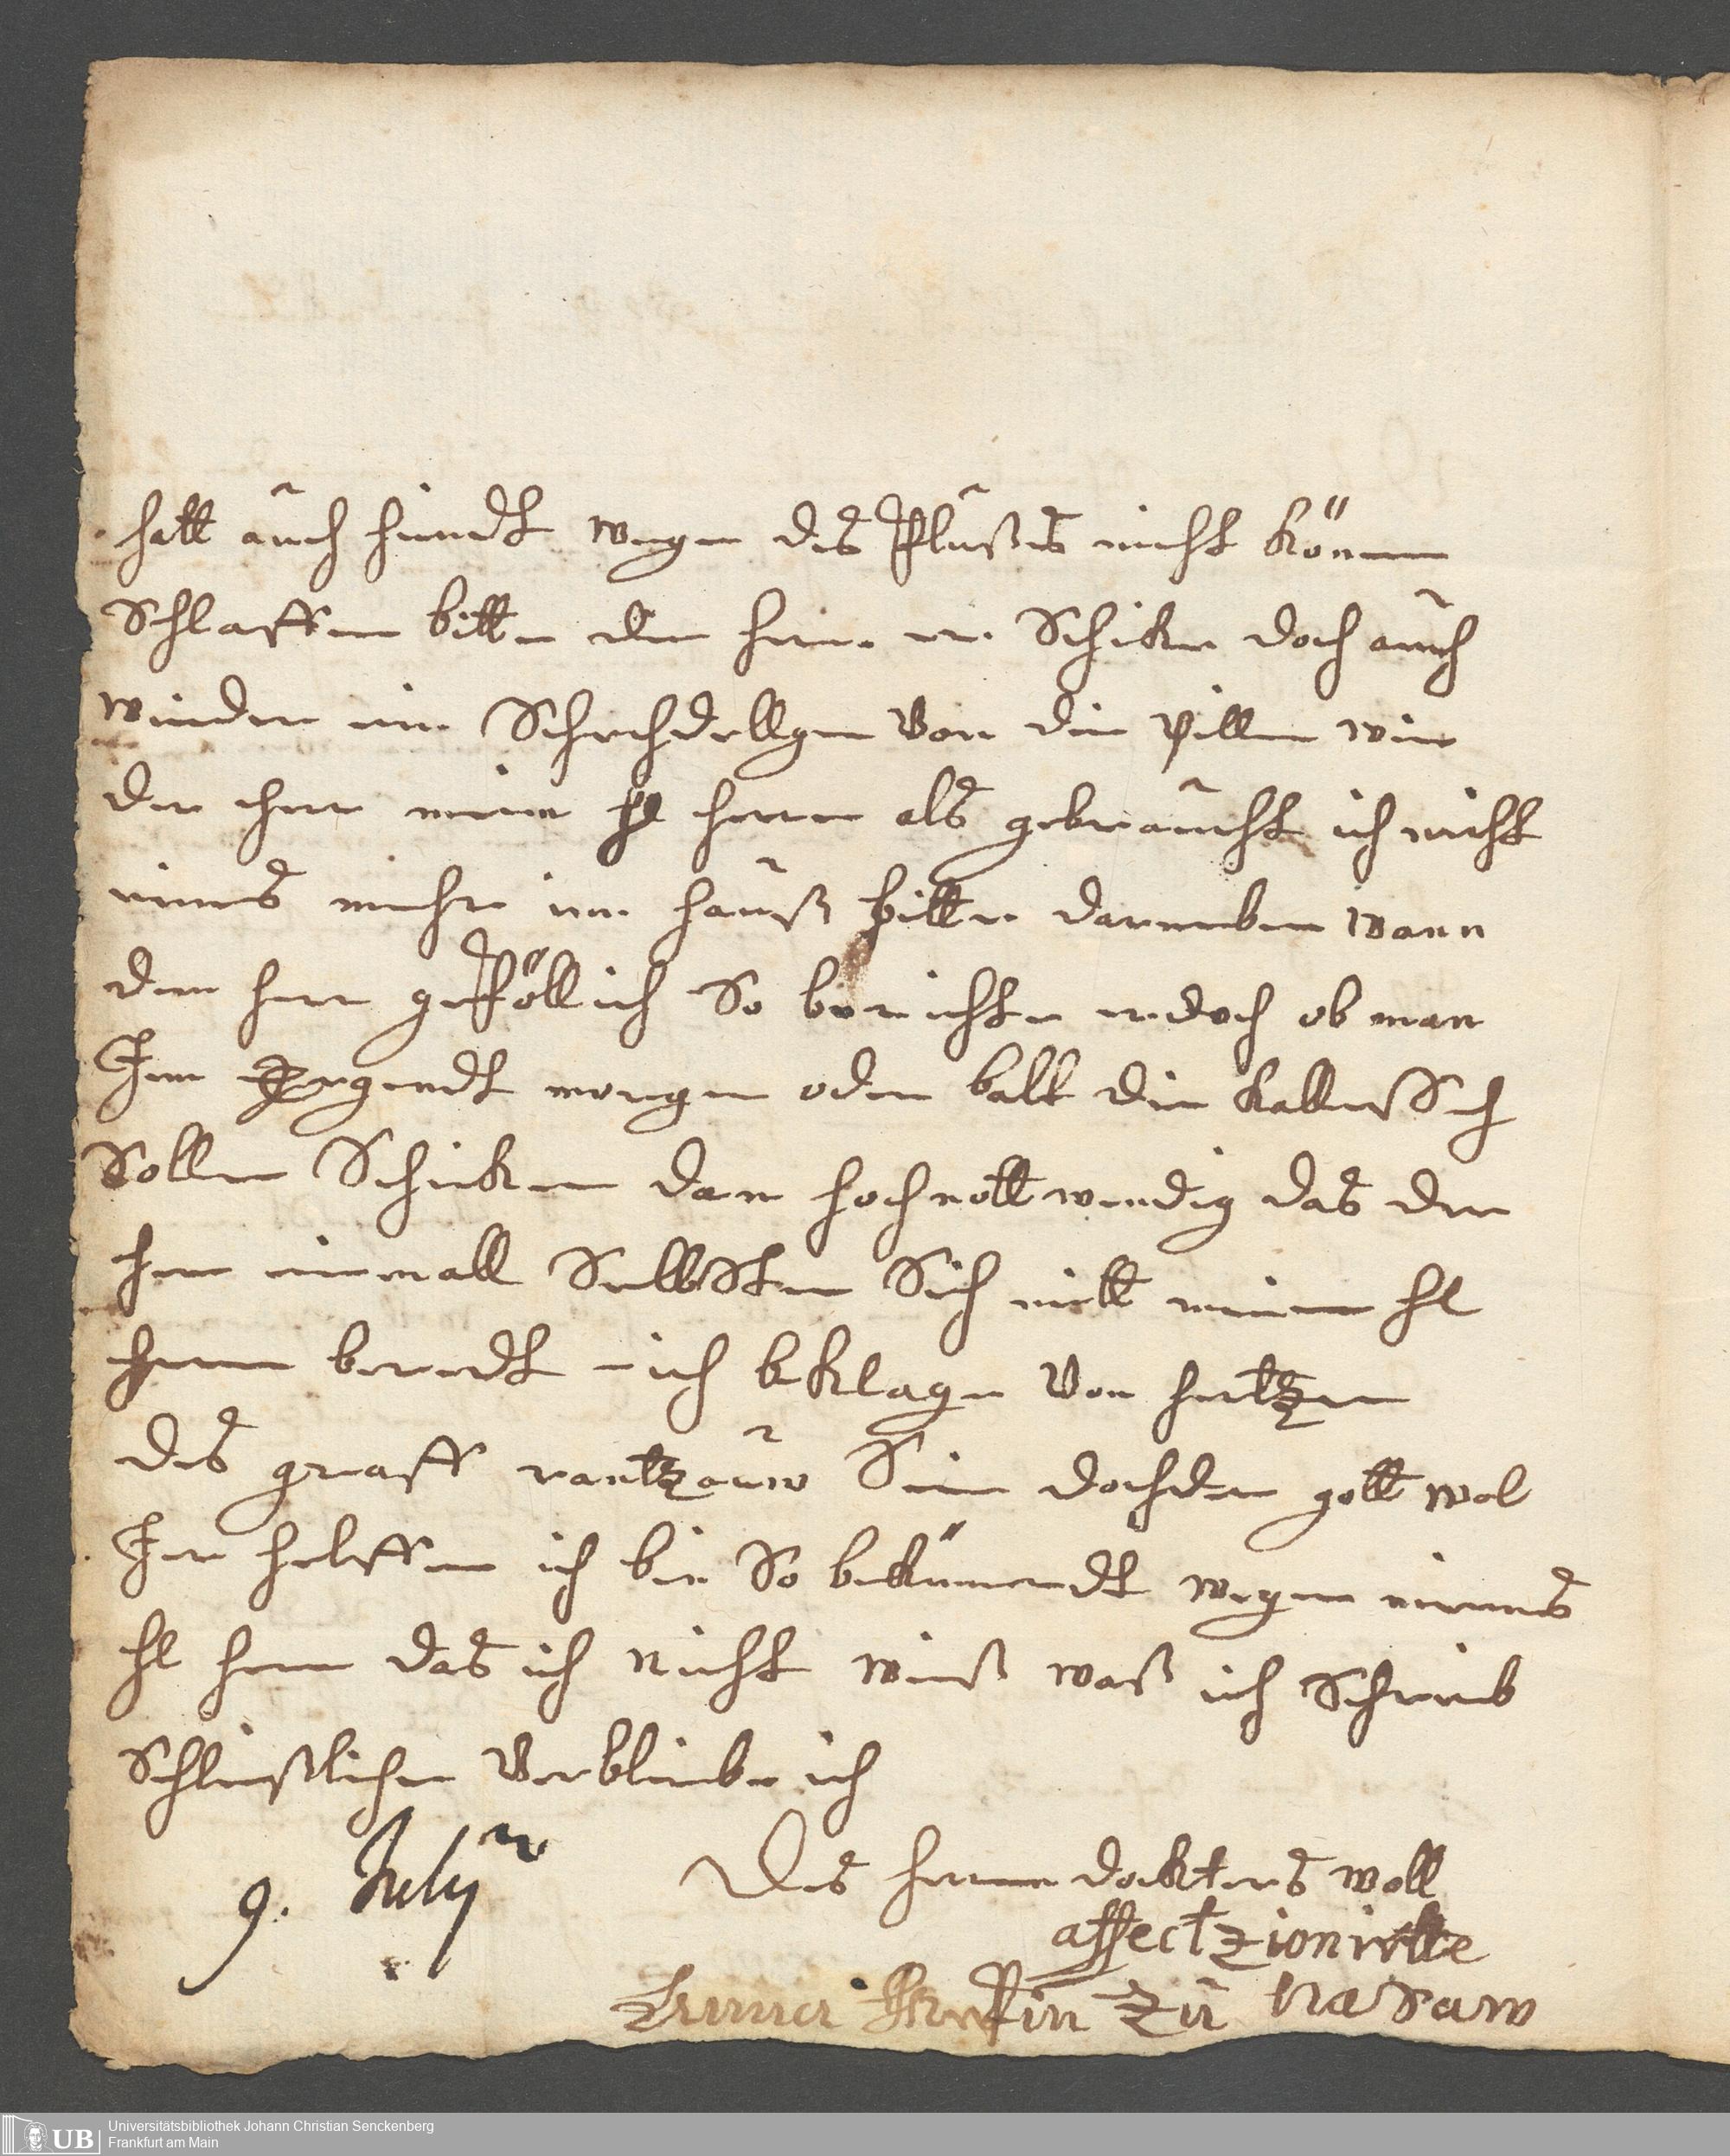 hatt auch hiendt wegen des Flußes nicht könen
Schlaffen bitte den hern er Schike doch auch
wieder ein Schechdellgen Von die pillen wie
der cher meine hl herrn als gebraucht ich nicht
eines mehr im hauß bitte darneben wann
dem herr geföllich So berichte er doch ob man
Im morgen oder balt die kalleßSch
Sollen Schicken dan hochnottwendig das der
her einmall Sellbsten Sich mitt meinem hl
hern beredt - ich beklage Von hertzen
des graff rantzauw Sein dochder gott wol
Ihr helffen ich bin So bekümerdt wegen meines
hl hern das ich nicht weiß waß ich Schreib
Schließlichen Verbleibe ich
9. July
Des herrn docktters woll
affectzionirtte
greffin zu naSaw
UB Universitätsbibliothek Johann Christian Senckenberg
Frankfurt am Main